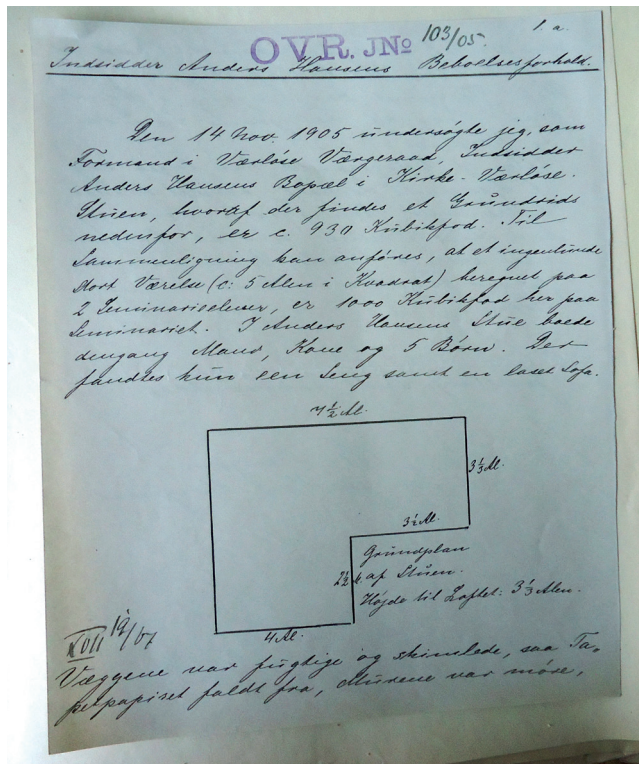 OVR. JNo 103/05.
1.a.
Indsidder Anders Hansens Beboelsesforhold.
Den 14 Nov. 1905 undersøgte jeg, som
Formand i Værløse Værgeraad, Indsidder
Anders Hansens Bopæl i Kirke-Værløse.
Stuen, hvoraf der findes et Grundrids
nedenfor, er c. 930 Kubikfod. Til
Sammenligning kan anføres, at et ingenlunde
stort Værelse (c: 5 Alen i Kvadrat) beregnet paa
2 Seminarieelever, er 1000 Kubikfod her paa
Seminariet. I Anders Hansens Stue boede
dengang Mand, Kone og 5 Børn. Der
fandtes kun een Seng samt en laset Sofa.
7½ Al.
3⅓ Al.
3½ Al.
Grundplan
2½ A. af Stuen.
Højde til Loftet: 3⅓ Alen.
4 Al.
XVII
Væggene var fugtige og skimlede, saa Ta-
petpapiret faldt fra, Murene var møre,